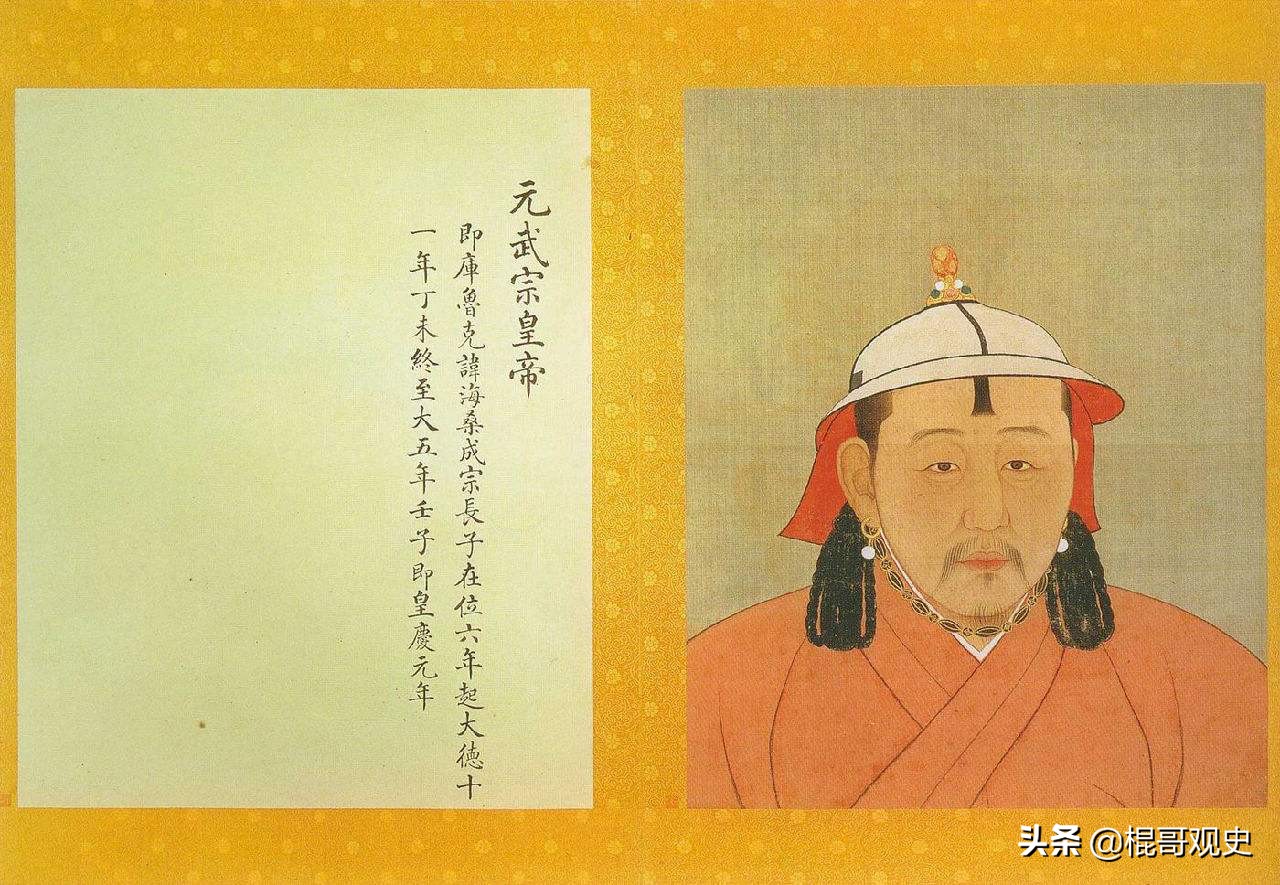 元武宗皇帝
即庫魯克諱海桑成宗長子在位六年起大德十
一年丁未終至大五年壬子即皇慶元年
头条 @棍哥观史